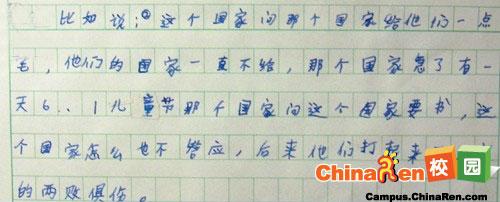 比如说:②这个国家问那个国家给他们一点
,他们的国家一直不给,那个国家急了有一
天6..1儿童节那个国家问这个国家要书,这
个国家怎么也不答应,后来他们打起来
的两败俱伤。
ChinaRen校园
Campus.ChinaRen.com